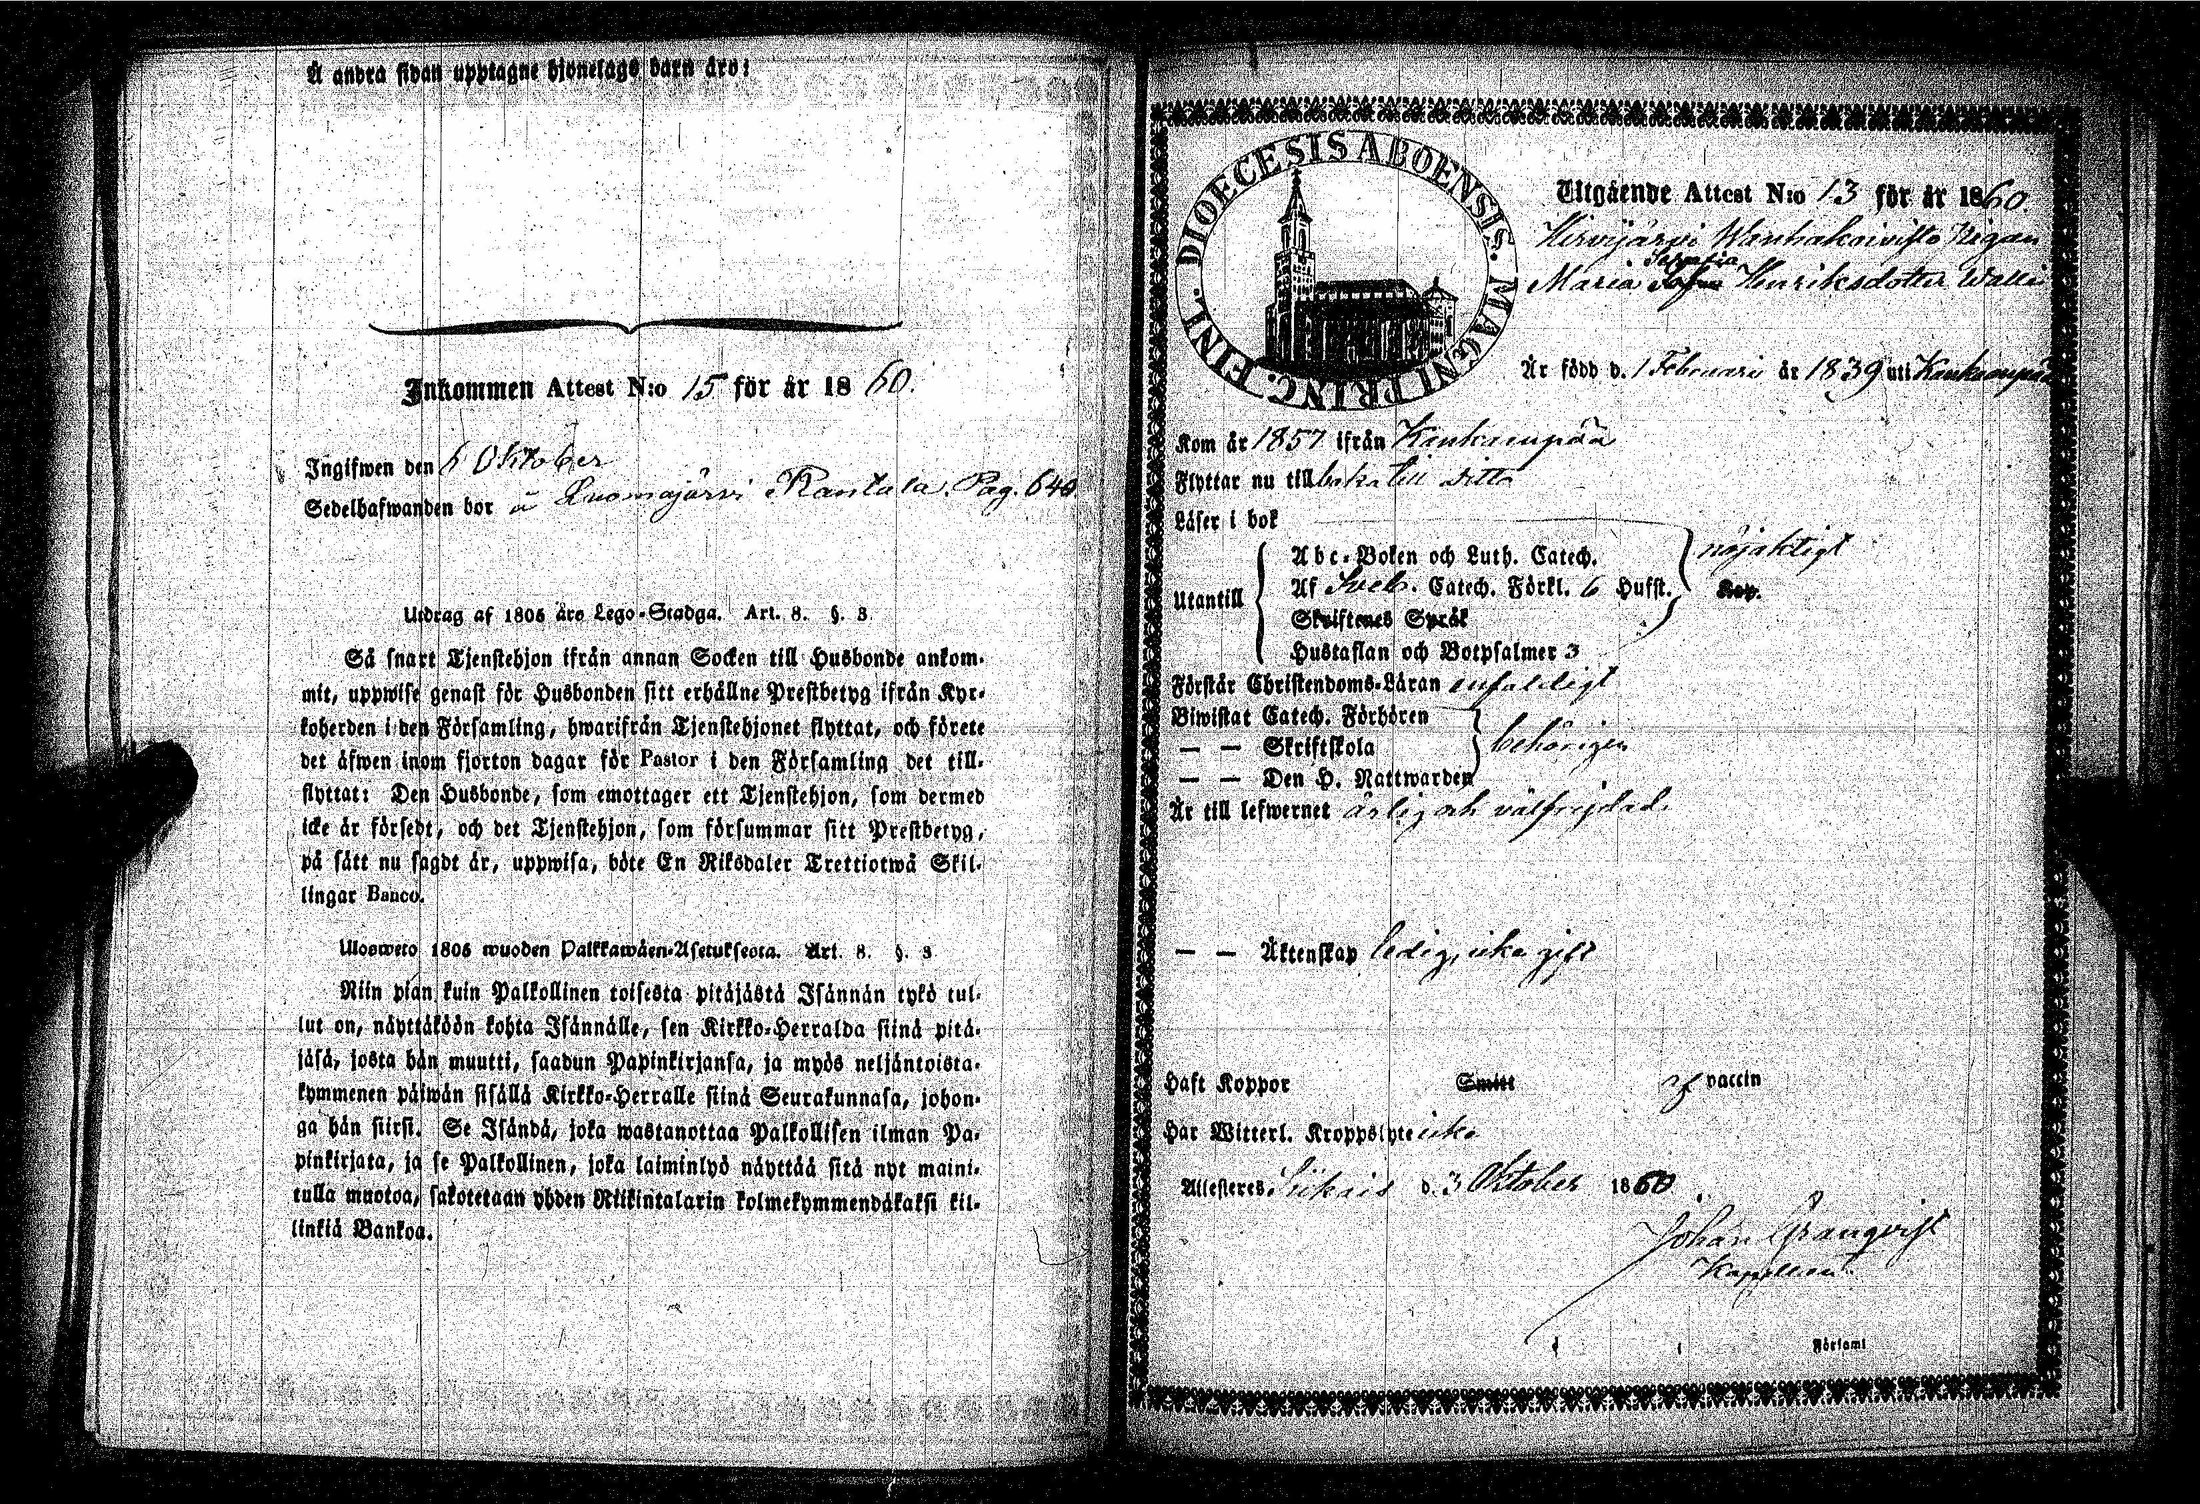 Å andra sidan upptagne hjonelags barn äro:
Inkommen Attest N:o 15 för år 1860.
Ingifwen den 6 Oktober
Sedelhafwanden bor å Luomajärvi Rantala. Pag. 640
Utdrag af 1805 års Lego-Stadga. Art. 8. §. 3.
Så snart Tjenstehjon ifrån annan Socken till Husbonde ankom-
mit, uppwise genast för Husbonden sitt erhållne Prestbetyg ifrån Kyr-
koherden i den Församling, hwarifrån Tjenstehjonet flyttat, och förete
det äfwen inom fjorton dagar för Pastor i den Församling det till-
flyttat: Den Husbonde, som emottager ett Tjenstehjon, som dermed
icke är försedt, och det Tjenstehjon, som försummar sitt Prestbetyg,
på sätt nu sagdt är, uppwisa, böte En Riksdaler Trettiotwå Skil-
lingar Banco.
Ulosweto 1805 wuoden Palkkawäen-Asetuksesta. Art. 8. §. 3
Niin pian kuin Palkollinen toisesta pitäjästä Isännän tykö tul-
lut on, näyttäköön kohta Isännälle, sen Kirkko-Herralda siinä pitä-
jäsä, josta hän muutti, saadun Papinkirjansa, ja myös neljäntoista-
kymmenen päiwän sisällä Kirkko-Herralle siinä Seurakunnasa, johon-
ga hän siirsi. Se Isändä, joka wastanottaa Palkollisen ilman Pa-
pinkirjata, ja se Palkollinen, joka laiminlyö näyttää sitä nyt maini-
tulla muotoa, sakotetaan yhden Riikintalarin kolmekymmendäkaksi kil-
linkiä Bankoa.
DIOECESIS ABOENSIS. MAGNI PRINC. FINL.
Utgående Attest N:o 13 för år 1860.
Hirvijärvi Wanhakoivisto Pigan
Serafia
Maria Henriksdotter Walli
Är född d. 1 Februari år 1839 uti Kankaanpää
Kom år 1857 ifrån Kankaanpää
Flyttar nu tillbaka till ditto
Läser i bok
Abc-Boken och Luth. Catech. nöjaktigt
Utantill Af Sveb. Catech. Förkl. 6 Hufst. Kap.
Skriftenes Språk
Hustaflan och Botpsalmer 3
Förstår Christendoms-Läran enfaldigt
Biwistat Catech. Förhören
— — Skriftskola behörigen
— — Den H. Nattwarden
Är till lefwernet ärlig och välfrejdad.
— — Äktenskap ledig, icke gift
Haft Koppor Smitt af vaccin
Har Witterl. Kroppslyte icke
Attesteras Siikais d. 3 Oktober 1860
Johan Granqvist
Kapellan.
Församl